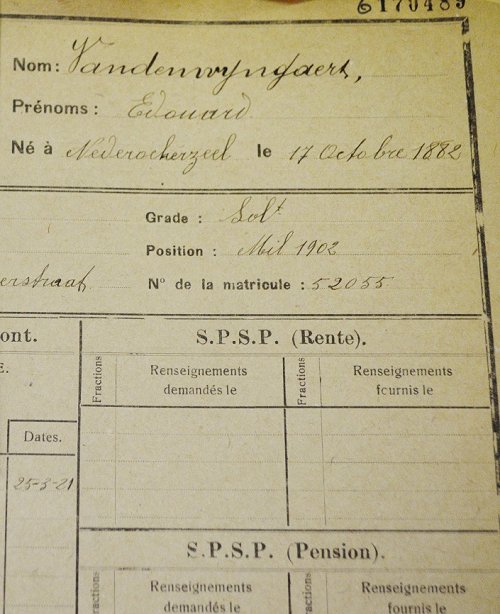 6170489
Nom: Vandenwyngaert,
Prénoms: Edouard
Né à Nederocherzeel le 17 Octobre 1882
Grade : Solt
Position : Mil 1902
erstraat N° de la matricule : 52055
ont. S.P.S.P. (Rente).
E. Fractions Renseignements demandés le Fractions Renseignements fournis le
Dates.
25-3-21
S.P.S.P. (Pension).
Fractions Renseignements Fractions Renseignements
demandés le fournis le